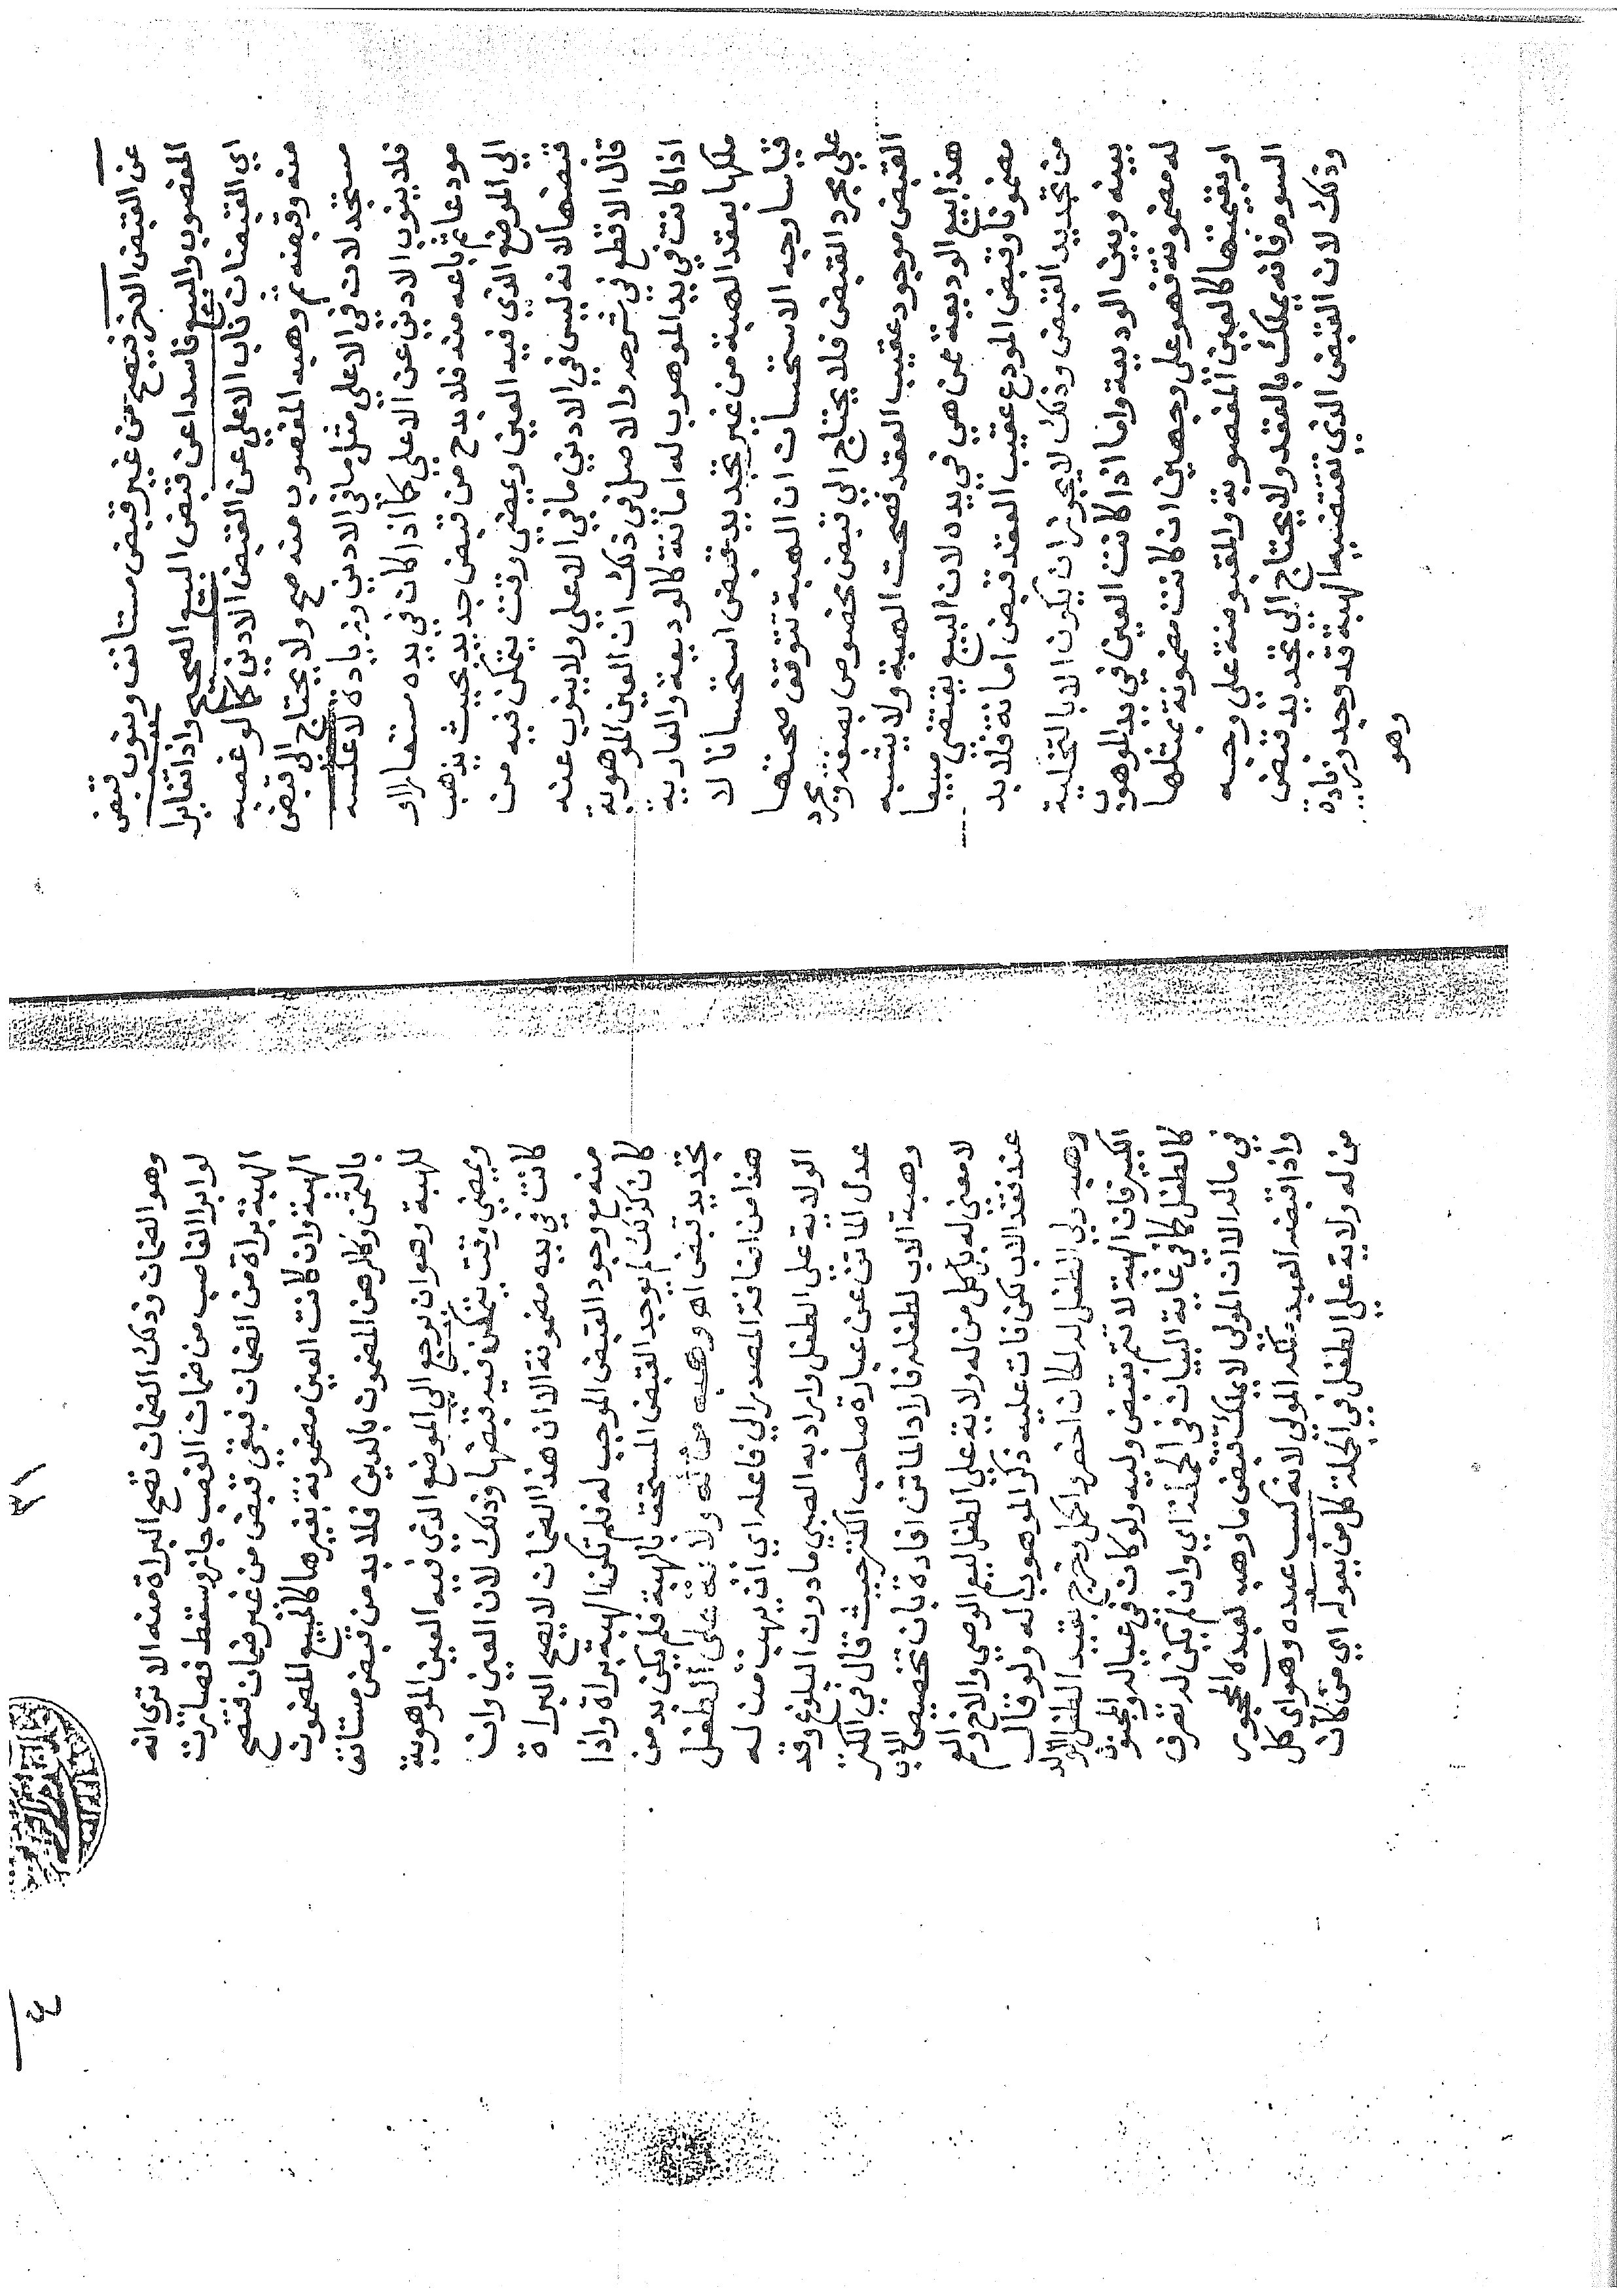 عن القبض الاخر فتصح من غير قبض مستانف وينوب قبض
المغصوب والمبيع فاسدا عن قبض المبيع الصحيح واذا تغايرا
اي القبضان ناب الاعلى عن القبض الادني كما لو غصبه
منه وقبضه ثم وهبه المغصوب منه صح ولا يحتاج الى قبض
مستجد لان في الاعلي مثل ما في الادني وزيادة لا عكسه
فلا ينوب الادني عن الاعلي كما اذا كان في يده مستعارا او
مودعا ثم باعه منه فلا بد من قبض جديد بحيث يذهب
الي الموضع الذي فيه العين ويمضي وقت يتمكن فيه من
قبضها لانه ليس في الادني ما في الاعلى ولا ينوب عنه
قال الاقطع في شرحه والاصل في ذلك ان العين الموهوبة
اذا كانت في يد الموهوب له امانة كالوديعة والعارية
ملكها بعقد الهبة من غير تجديد قبض استحسانا لا
قياسا وجه الاستحسان ان الهبة تتوقف صحتها
علي مجرد القبض فلا يحتاج الي قبض مخصوص بصفة ومجرد
القبض موجود عقيب العقد فصحت الهبة ولا يشبه
هذا بيع الوديعة ممن هي في يده لان البيع يقتضي مبيعا
مضمونا وقبض المودع عقيب العقد قبض امانة فلا بد
من تجديد القبض وذلك لا يجوز ان يكون الا بالتخلية
بينه وبين الوديعة واما اذا كانت العين في يد الموهوب
له مضمونة فهو على وجهين ان كانت مضمونة بمثلها
او بقيمتها كالعين المغصوبة والمقبوضة علي وجه
السوم فانه يملك بالعقد ولا يحتاج الي تجديد قبض
وذلك لان القبض الذي تقتضيه الهبة قد وجد وزيادة
وهو
٣١
وهو الضمان وذلك الضمان تصح البراة منه الا تري انه
لو ابرا الغاصب من ضمان الغصب جاز وسقط فصارت
الهبة براة من الضمان فيبقي قبض من غير ضمان فتصح
الهبة وان كانت العين مضمونة بغيرها كالمبيع المضمون
بالثمن وكالرهن المضمون بالدين فلا بد من قبض مستانف
للهبة وهو ان يرجع الي الموضع الذي فيه العين الموهوبة
ويمضي وقت يتمكن فيه قبضها وذلك لان العين وان
كانت في يده مضمونة الا ان هذا الضمان لا يصح البراة
منه مع وجود القبض الموجب له فلم تكن الهبة براة واذا
كان كذلك لم يوجد القبض المستحق بالهبة فلم يكن بد من
تجديد قبض اهـ وهبة من له ولاية على الطفل
هذا من اضافة المصدر الي فاعله اي ان يهب من له
الولاية على الطفل وامراد به الصبي مادون البلوغ وقد
عدل الماتن عن عبارة صاحب الكنز حيث قال في الكنز
وهبة الاب لطفله فاراد الماتن افادة بان تخصيص الاب
لا معني له بل كل من له ولاية علي الطفل ليعم الوصي والاخ والعم
عند فقد الاب لكن فات عليه ذكر الموهوب له ولو قال
وهبه ولي الطفل له لكان اخصر واكمل وخرج بقيد الطفل الولد
الكبير فان الهبة لا تتم بقبض وليه ولو كان في عياله والمجنون
كالطفل كما في غاية البيان في الجملة اي وان لم يكن له تصرف
في ماله الا ان المولي لا يملك قبض ما وهب لعبده المحجور
واذا قبضه العبد ملكه المولي لانه كسب عبده وهو اي كل
من له ولاية علي الطفل في الجملة كل من يعوله اي متى كان
٤